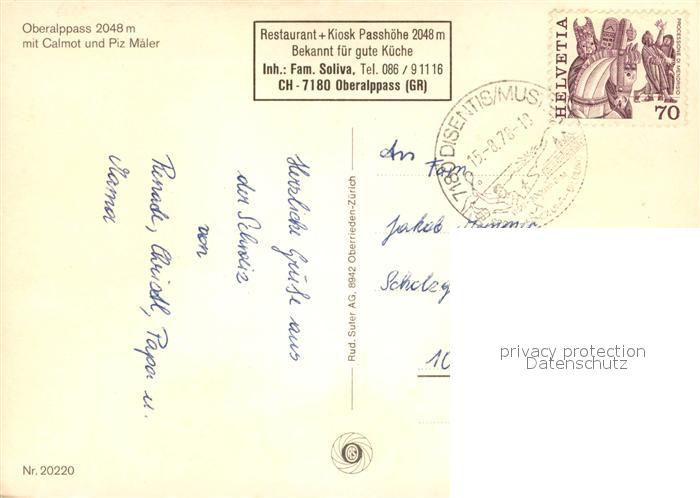 Oberalppass 2048 m
mit Calmot und Piz Mäler
Restaurant + Kiosk Passhöhe 2048 m
Bekannt für gute Küche
Inh.: Fam. Soliva, Tel. 086 / 9 11 16
CH - 7180 Oberalppass (GR)
HELVETIA
PROCESSIONE DI MENDRISIO
70
7180 DISENTIS/MUST
15.-8.78-18
Herzliche Grüße aus
der Schweiz
von
Renate, Christl, Papa u.
Mama
Rud. Suter AG, 8942 Oberrieden-Zürich
An Fam
Jakob
Scholzg
10
privacy protection
Datenschutz
Nr. 20220